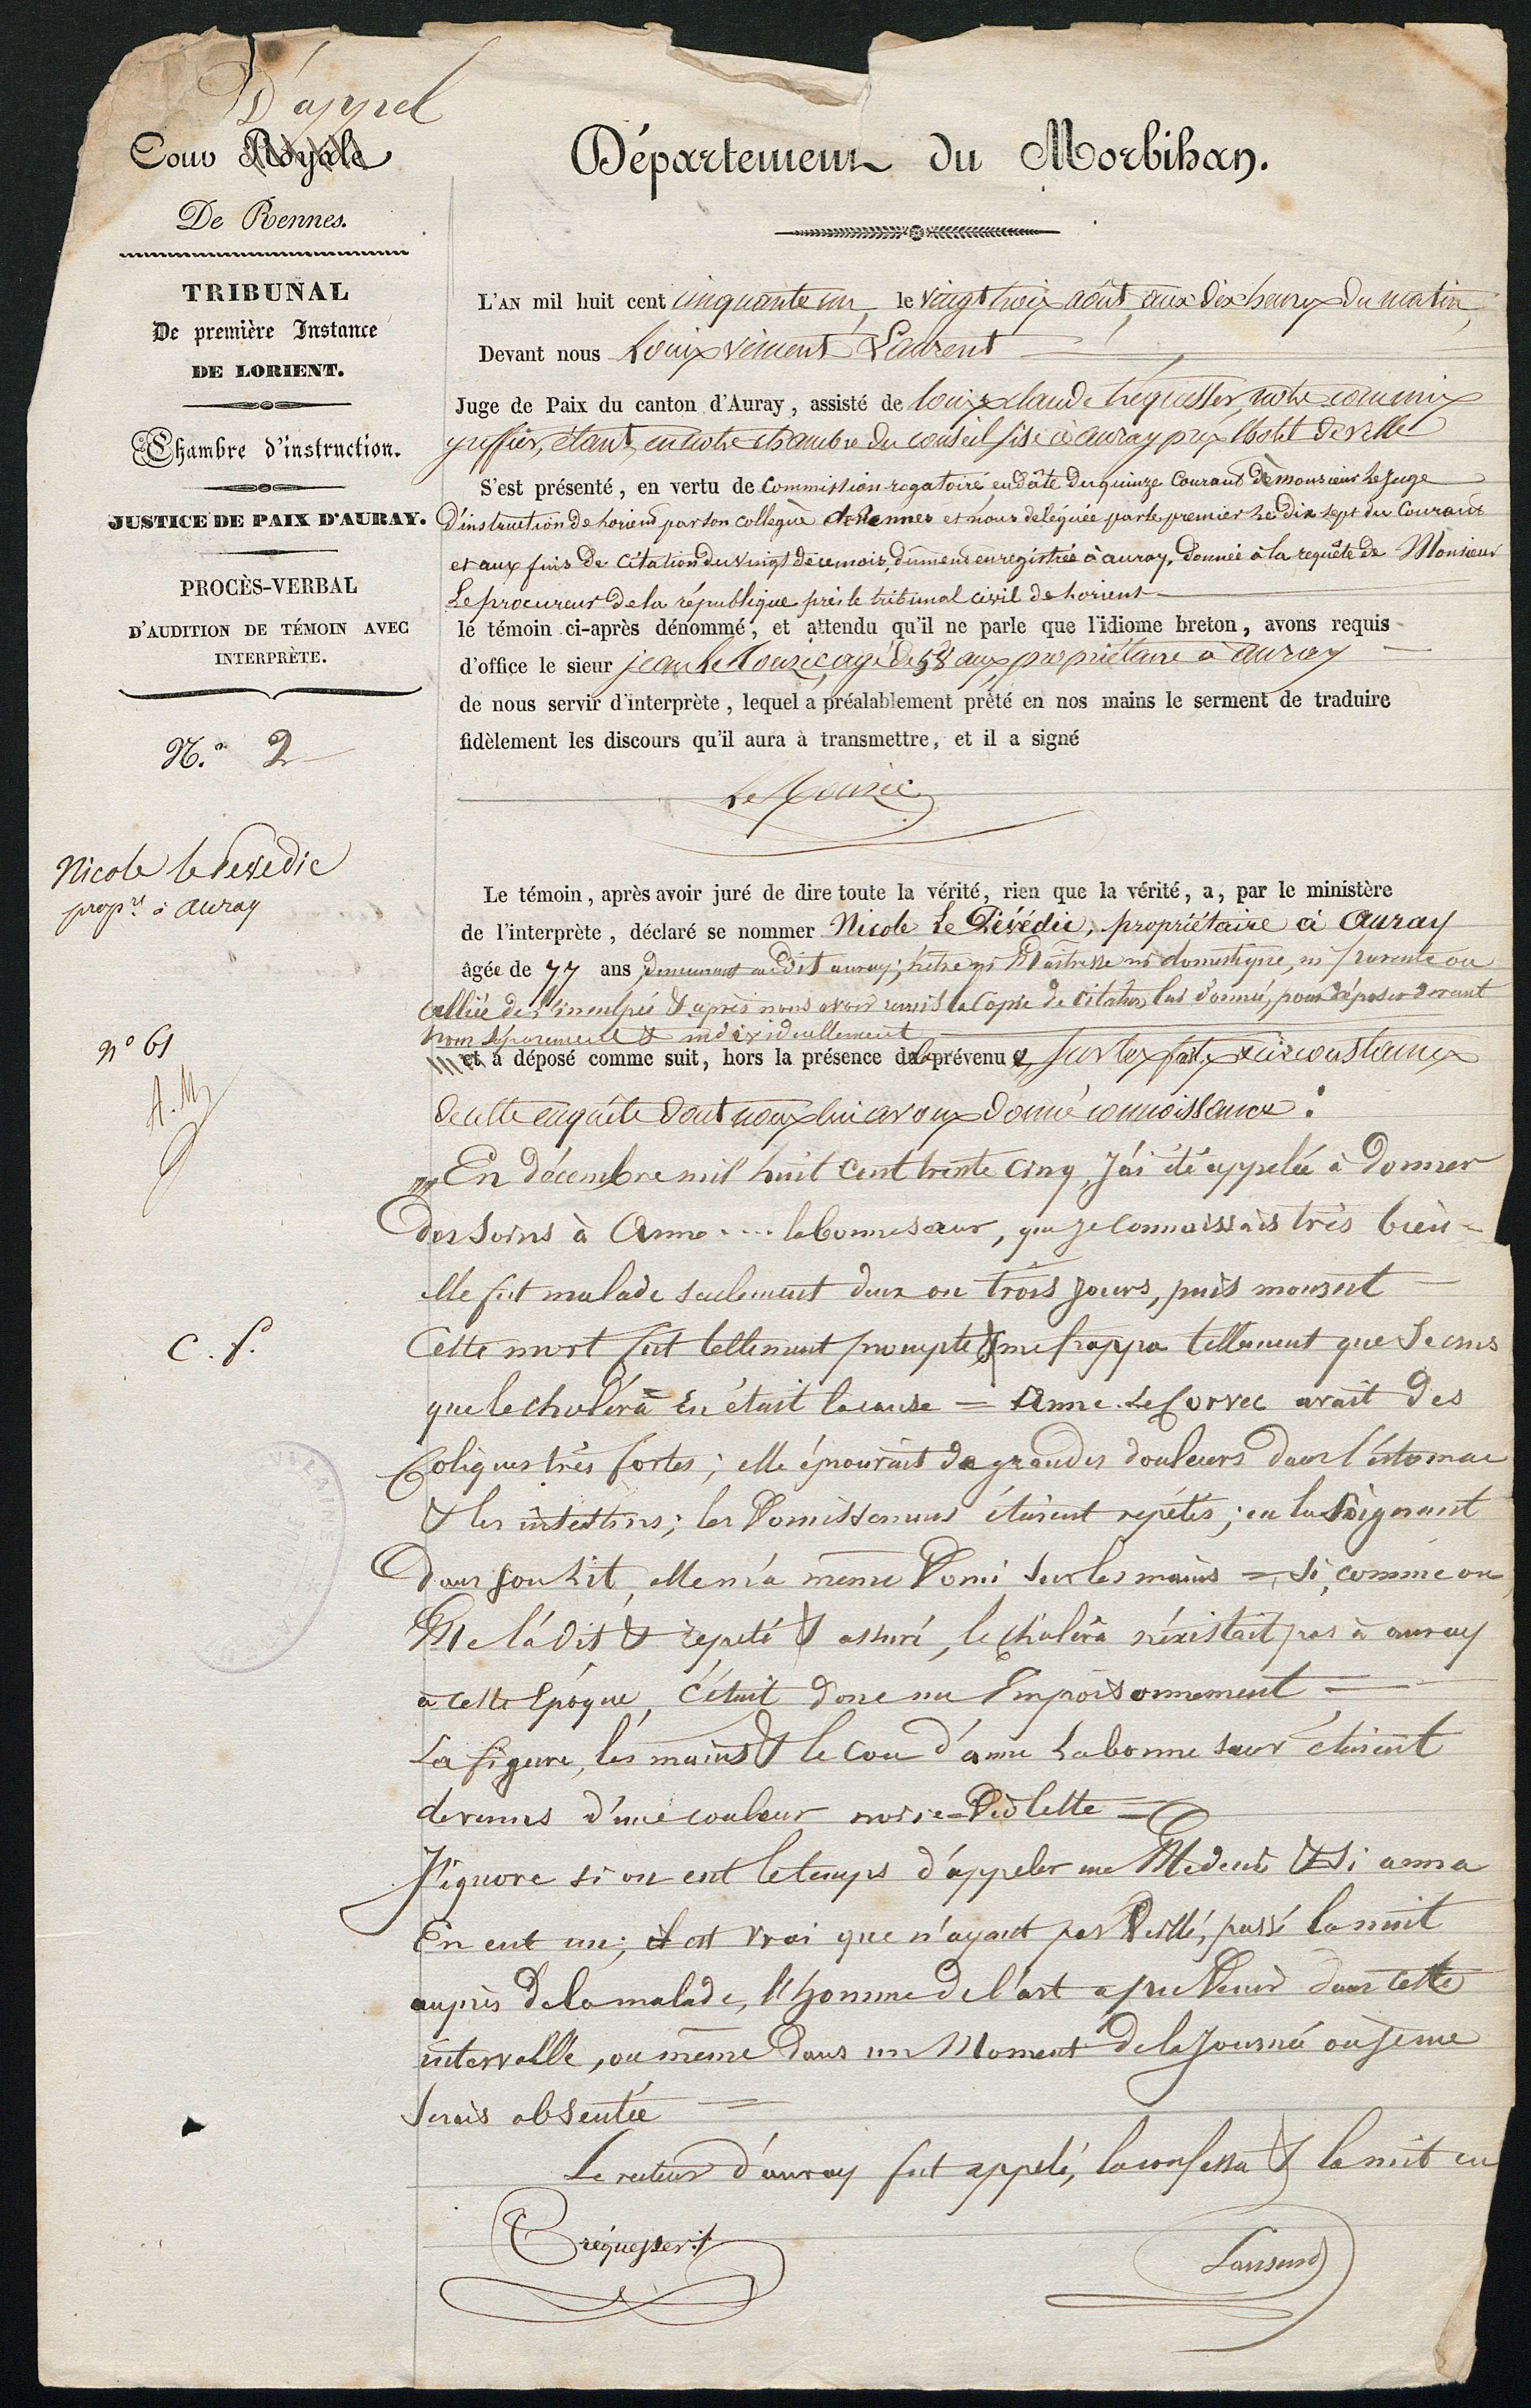 D'appel
Cour Royale
De Rennes.
TRIBUNAL
De première Instance
DE LORIENT.
Chambre d'instruction.
JUSTICE DE PAIX D'AURAY.
PROCÈS-VERBAL
D'AUDITION DE TÉMOIN AVEC
INTERPRÈTE.
N.° 2
Nicole le Pevedic
prop.re à auray
n° 61
A. M
C. f.
Département du Morbihan.
L'AN mil huit cent cinquante un, le vingt trois août, aux dix heures du matin,
Devant nous Louis Vincent Laurent
Juge de Paix du canton d'Auray, assisté de louis claude tréquesser, notre commis
greffier, étant en notre chambre du conseil sise à auray près l'hotel de ville
S'est présenté, en vertu de Commission rogatoire en date du quinze Courant de monsieur le Juge
d'instruction de Lorient par son collègue de Rennes et nous deléguée par le premier le dix sept du Courant
et aux fins de Citation du vingt de ce mois, dument enregistrée à auray, donnée à la requête de Monsieur
Le procureur de la république près le tribunal civil de Lorient
le témoin ci-après dénommé, et attendu qu'il ne parle que l'idiome breton, avons requis
d'office le sieur jean Le Touzic, agé de 58 ans, propriétaire à auray
de nous servir d'interprète, lequel a préalablement prêté en nos mains le serment de traduire
fidèlement les discours qu'il aura à transmettre, et il a signé
Le Touzic
Le témoin, après avoir juré de dire toute la vérité, rien que la vérité, a, par le ministère
de l'interprète, déclaré se nommer Nicole Le Pévédic, propriétaire à Auray
âgée de 77 ans, demeurant audit auray; n'être ni Maîtresse ni domestique, ni parente ou
alliée de l'inculpée & après nous avoir remis la Copie de citation lui donnée, pour déposer devant
nous séparement & individuellement
et a déposé comme suit, hors la présence de la prévenue, sur les faits & circonstances
de cette enquête dont nous lui avons donné connoissance:
"En décembre mil huit Cent trente Cinq, J'ai été appelée à donner
des Soins à Anne .... labonnesœur, que je Connaissais très bien =
elle fut malade seulement deux ou trois Jours, puis mourut =
Cette mort fut tellement prompte & me frappa tellement que Je crus
que le choléra En était la cause = Anne Le Corvec avait des
Coliques très fortes; elle éprouvait de grandes douleurs dans l'éstomac
& les intestins; les Vomissemens étaient répétés; en la Soignant
dans son Lit, elle m'a même Vomi sur les mains =, Si, comme on
Me l'a dit & répété & assuré, le Choléra n'éxistait pas à auray
à cette Epoque, C'était donc un Empoisonnement =
La figure, les mains & le Cou d'anne Labonne sœur étaient
devenus d'une couleur noire-Violette =
J'ignore si on eut le temps d'appeler un Médecin & Si anna
En eut un; il est Vrai que n'ayant pas Veillé, passé la nuit
auprès de la malade, l'homme de l'art a pu Venir dans cette
intervalle, ou même dans un Moment de la Journée où Je me
serais absentée =
Le recteur d'auray fut appelé, la confessa & la mit en
Tréquesser
Laurent